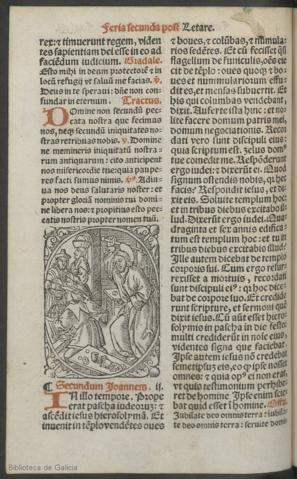 Feria secunda post Letare.
rex: et timuerunt regem, viden
tes sapientiam dei esse in eo ad
faciēdum iudicium. Gradale.
Esto mihi in deum protectorē et in
locū refugij vt saluū me facias. v.
Deus in te speraui: dñe non con
fundar in eternum. Tractus.
Domine non secundū pec
cata nostra que fecimus
nos, neqʒ secundū iniquitates no
stras retribuas nobis. v. Domine
ne memineris iniquitatū nostra
rum antiquarum: cito anticipent
nos misericordie tue: quia paupe
res facti sumus nimis. v. Adiu
ua nos deus salutaris noster: et
propter gloriā nominis tui domi
ne libera nos: et propitius esto pec
catis nostris propter nomen tuū.
¶ Secundum Joannem. ij.
IN illo tempore. Prope
erat pascha iudeorum: et
ascēdit iesus hierosolymā. Et
inuenit in tēplo vendētes oues
et boues, et colūbas, et nūmula-
rios sedētes. Et cū fecisset q̄si
flagellum de funiculis, oēs eie
cit de tēplo: oues quoqʒ et bo
ues et numulariorum effu
dit es, et mensas subuertit. Et
his qui columbas vendebant,
dixit. Auferte ista hinc: et no
lite facere domum patris mei,
domum negociationis. Recor
dati vero sunt discipuli eius:
quia scriptum est. zelus dom°
tue comedit me. Respōderunt
ergo iudei: et dixerūt ei. Quod
signum ostendis nobis, q̄ hec
facis? Respondit iesus, et di
xit eis. Soluite templum hoc:
et in tribus diebus excitabo il
lud. Dixerūt ergo iudei. Qua
draginta et sex annis edifica-
tum est templum hoc: et tu in
tribus diebus excitabis illud?
Ille autem dicebat de templo
corporis sui. Cum ergo resur
rexisset a mortuis, recordati
sunt discipuli ei°: q̄ hoc dice-
bat de corpore suo. Et credide
runt scripture, et sermoni quē
dixit iesus. Cū aūt esset hiero-
solymis in pascha in die festo:
multi crediderūt in noīe eius,
videntes signa que faciebat.
Ipse autem iesus nō credebat
semetipsum eis, eo q̄ ipse nosset
omnes: et quia op° ei non erat,
vt quis testimonium perhibe-
ret de homine. Ipse enim scie
bat quid esset ī homine. Offer.
Jubilate deo omnis terra: iubi
late deo omnis terra: seruite domi
Biblioteca de Galicia